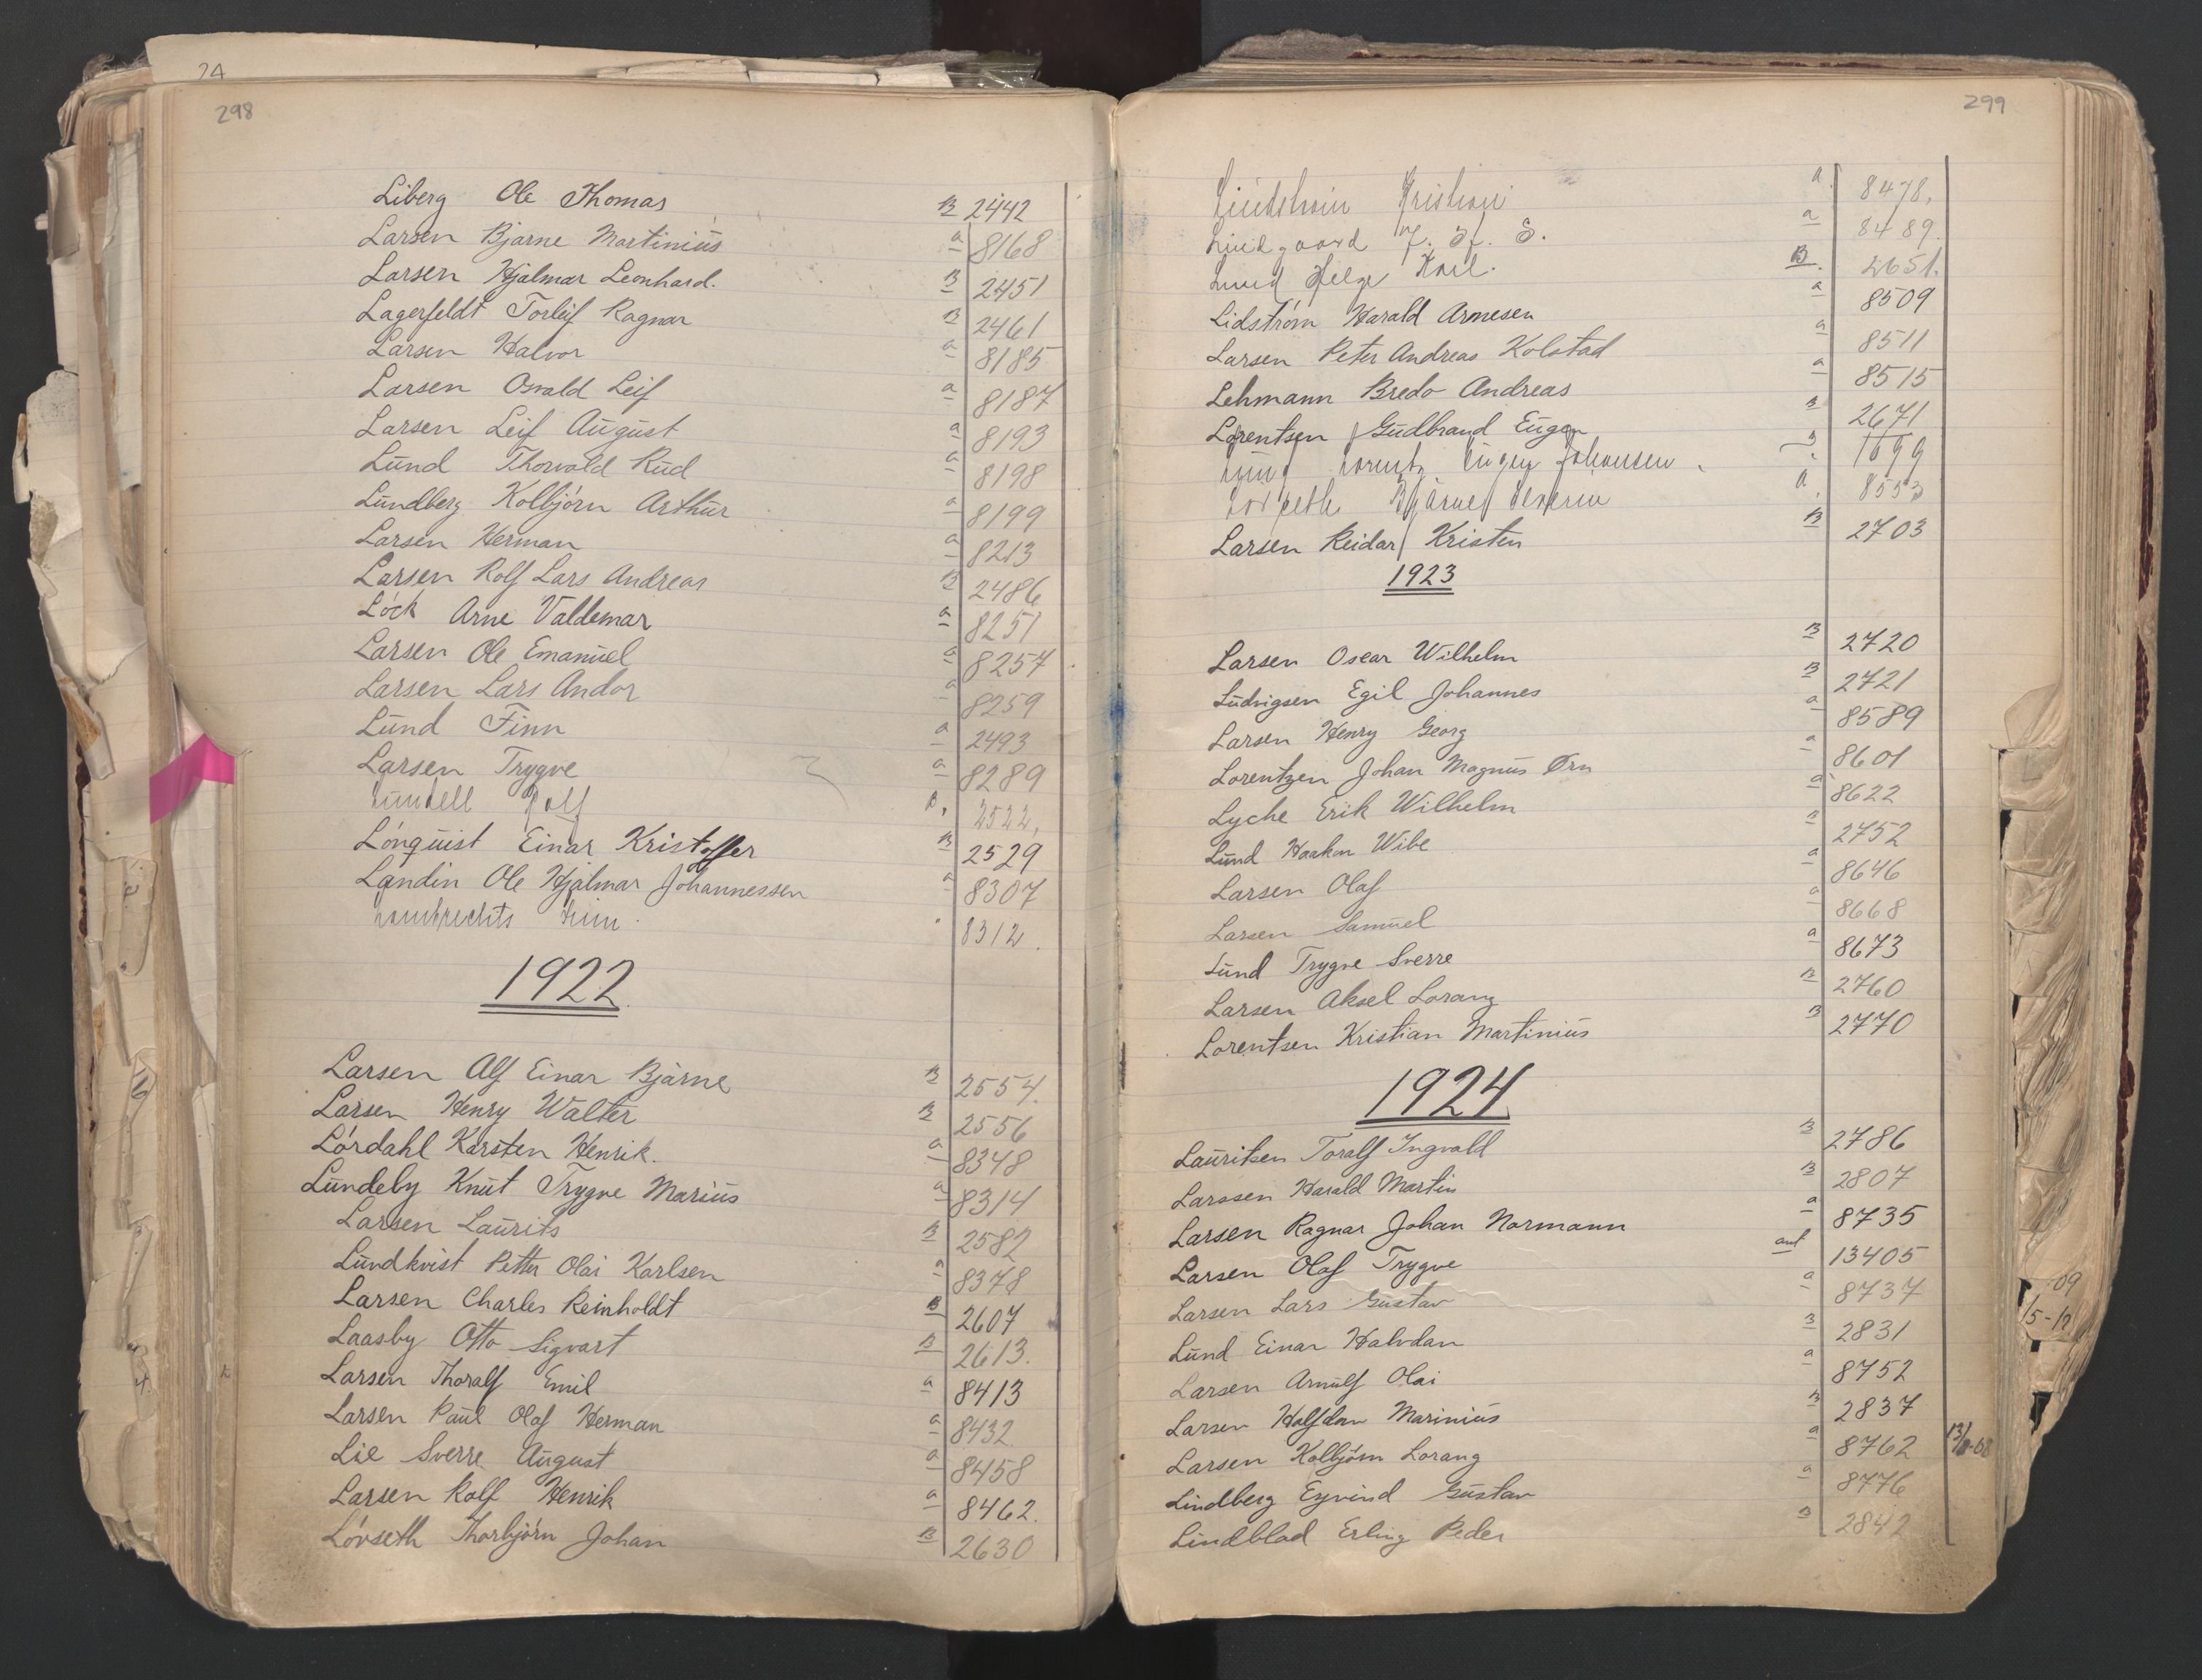 24
298
Liberg Ole Thomas B 2442
Larsen Bjarne Martinius a 8168
Larsen Hjalmar Leonhard. B 2451
Lagerfeldt Torleif Ragnar B 2461
Larsen Halvor a 8185
Larsen Osvald Leif a 8187
Larsen Leif August a 8193
Lund Thorvald Rud a 8198
Lundberg Kolbjörn Arthur a 8199
Larsen Herman a 8213
Larsen Rolf Lars Andreas B 2486
Löck Arne Valdemar a 8251
Larsen Ole Emanuel a 8257
Larsen Lars Andor a 8259
Lund Finn a 2493
Larsen Trygve a 8289
Lundell Rolf B. 2522.
Lönquist Einar Kristoffer B 2529
Landin Ole Hjalmar Johannessen a 8307
Lambrechts 8312.
1922.
Larsen Alf Einar Bjarne B 2554.
Larsen Henry Walter B 2556
Lördahl Karsten Henrik. a 8348
Lundeby Knut Trygve Marius a 8314
Larsen Laurits B 2582
Lundkvist Petter Olai Karlsen a 8378
Larsen Charles Reinholdt B 2607
Laasby Otto Sigvart B 2613.
Larsen Thoralf Emil a 8413
Larsen Paul Olaf Herman a 8432
Lie Sverre August a 8458
Larsen Rolf Henrik a 8462.
Lövseth Thorbjörn Johan B 2630
299
Lindstrøm Kristian a. 8478.
Lindgaard a 8489.
Lund Helge Karl. B. 2651.
Lidström Harald Arnesen a 8509
Larsen Peter Andreas Kolstad a 8511
Lehmann Bredo Andreas a 8515
Lorentsen Gudbrand Eugen B 2671
Lund Lorentz Eugen Johansen. 1699
Bjarne Severin a. 8553
Larsen Reidar Kristen B 2703
1923
Larsen Oscar Wilhelm B 2720
Ludvigsen Egil Johannes B 2721
Larsen Henry Georg a 8589
Lorentzen Johan Magnus Ørn a 8601
Lyche Erik Wilhelm a 8622
Lund Haakon Wibe B 2752
Larsen Olaf a 8646
Larsen Samuel a 8668
Lund Trygve Sverre a 8673
Larsen Aksel Lorang B 2760
Lorentsen Kristian Martinius B 2770
1924
Lauritsen Toralf Ingvald B 2786
Larssen Harald Martin B 2807
Larsen Ragnar Johan Normann a 8735
Larsen Olaf Trygve aut 13405
Larsen Lars Gustav a 8737
Lund Einar Halvdan B 2831
Larsen Arnulf Olai a 8752
Larsen Halfdan Marinius B 2837
Larsen Kolbjörn Lorang a 8762
Lindberg Eyvind Gustav a 8776
Lindblad Erling Peder B 2842